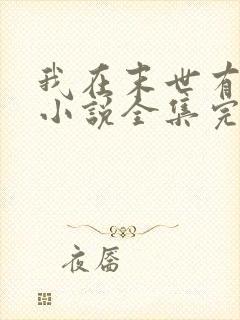 我在末世有
小说全集完
夜厝